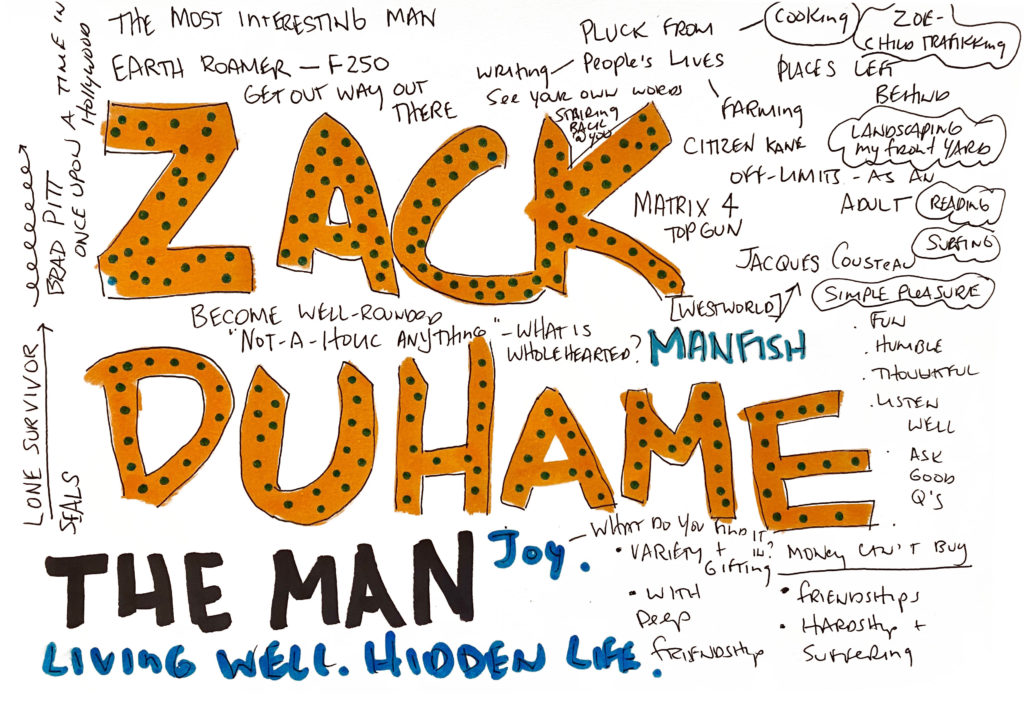 THE MOST INTERESTING MAN
EARTH ROAMER – F250
GET OUT WAY OUT
THERE
BRAD PITT
ONCE UPON A TIME IN
Hollywood
ZACK
WRITING
See YOUR OWN WORDS
STAIRING
BACK
@ YOU
PLUCK FROM
People's LIVES
COOKING
FARMING
ZOE-
CHILD TRAFIKKING
PLACES LEFT
BEHIND
CITIZEN KANE
LANDSCAPING
my FRONT YARD
OFF-LIMITS - AS AN
ADULT
READING
MATRIX 4
TOP GUN
SURFING
JACQUES COUSTEAU
[WESTWORLD]
SIMPLE PLEASURE
. FUN
. HUMBLE
. THOUGHTFUL
. LISTEN
WELL
. ASK
GOOD
Q'S
.
BECOME WELL-ROUNDED
"NOT-A-HOLIC ANYTHING" - WHAT IS
WHOLEHEARTED?
MANFISH
LONE SURVIVOR
SEALS
DUHAME
THE MAN
Joy.
WHAT DO YOU FIND IT
IN?
• VARIETY +
GIFTING
• WITH
Deep
FRIENDSHIP
MONEY CAN'T BUY
• FRIENDSHIPS
• HARDSHIP +
SUFFERING
LIVING WELL. HIDDEN LIFE.